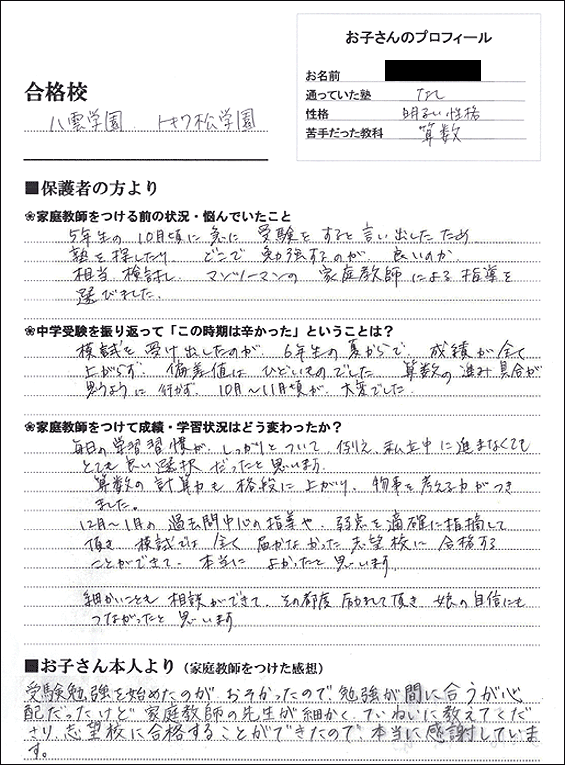 お子さんのプロフィール
お名前
通っていた塾 なし
性格 明るい性格
苦手だった教科 算数
合格校
八雲学園 トキワ松学園
■保護者の方より
❀家庭教師をつける前の状況・悩んでいたこと
5年生の10月頃に急に受験をすると言い出したため、
塾を探したり、どこで勉強するのが、良いのか
相当、検討し、マンツーマンの家庭教師による指導を
選びました。
❀中学受験を振り返って「この時期は辛かった」ということは?
模試を受け出したのが、6年生の夏からで、成績が全く
上がらず、偏差値はひどいものでした。算数の進み具合が
思うように行かず、10月〜11月頃が、大変でした。
❀家庭教師をつけて成績・学習状況はどう変わったか?
毎日の学習習慣が、しっかりとついて、例え、私立中に進まなくても
とても良い選択だったと思います。
算数の計算力も格段に上がり、物事を考える力がつき
ました。
12月〜1月の過去問中心の指導や、弱点を適確に指摘して
頂き、模試では全く届かなかった志望校に合格する
ことができて、本当によかったと思います。
細かいことも相談ができて、その都度励まして頂き、娘の自信にも
つながったと思います。
■お子さん本人より(家庭教師をつけた感想)
受験勉強を始めたのが、おそかったので勉強が間に合うが心
配だったけど家庭教師の先生が細かく、ていねいに教えてくだ
さり、志望校に合格することができたので、本当に感謝していま
す。